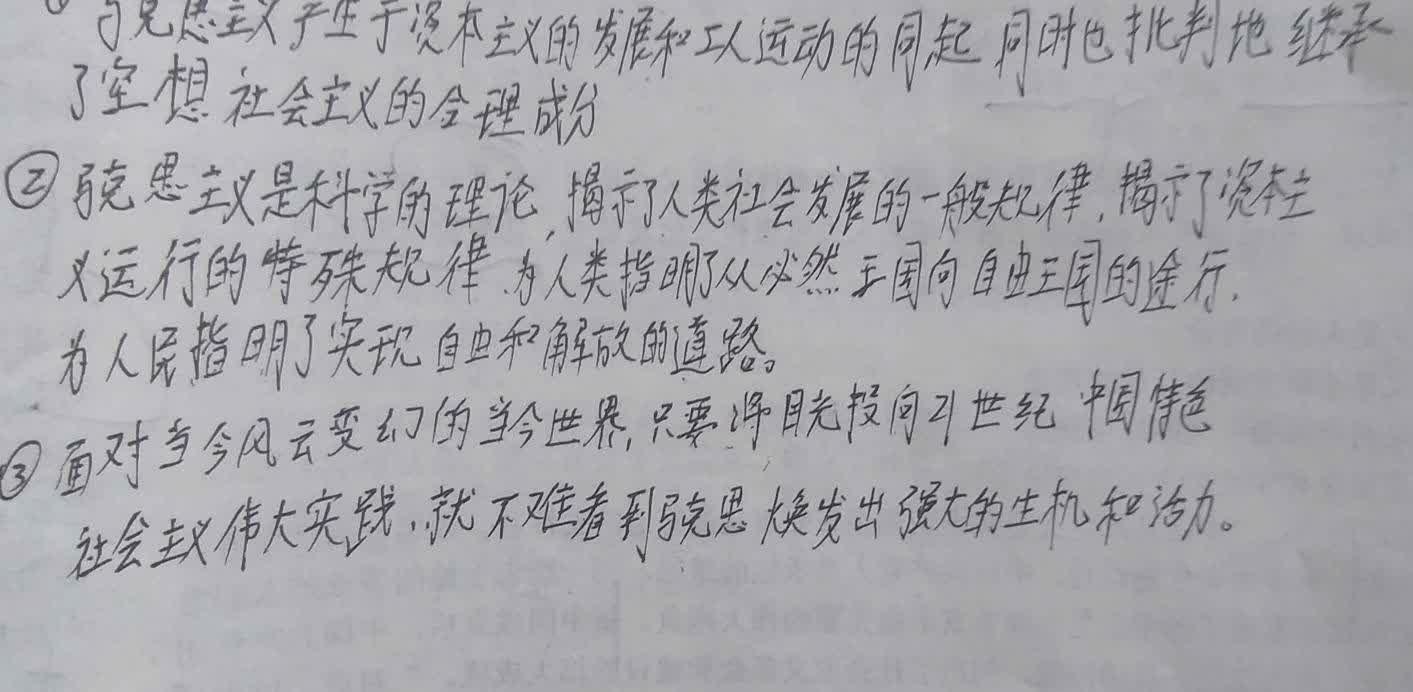 马克思主义产生于资本主义的发展和工人运动的同起 同时也批判地继承
了空想社会主义的合理成分
② 马克思主义是科学的理论,揭示了人类社会发展的一般规律,揭示了资本主
义运行的特殊规律.为人类指明了从必然王国向自由王国的途行.
为人民指明了实现自由和解放的道路。
③ 面对当今风云变幻的当今世界,只要将目光投向21世纪 中国特色
社会主义伟大实践,就不难看到马克思焕发出强大的生机和活力。